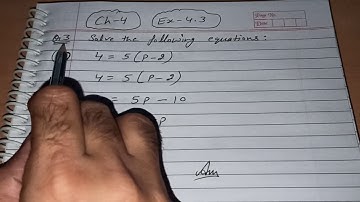 Ch-4 Ex-4.3
Page No.
Date
Q.3 Solve the following equations:
4 = 5(P-2)
4 = 5(P-2)
= 5P - 10
P
Ans